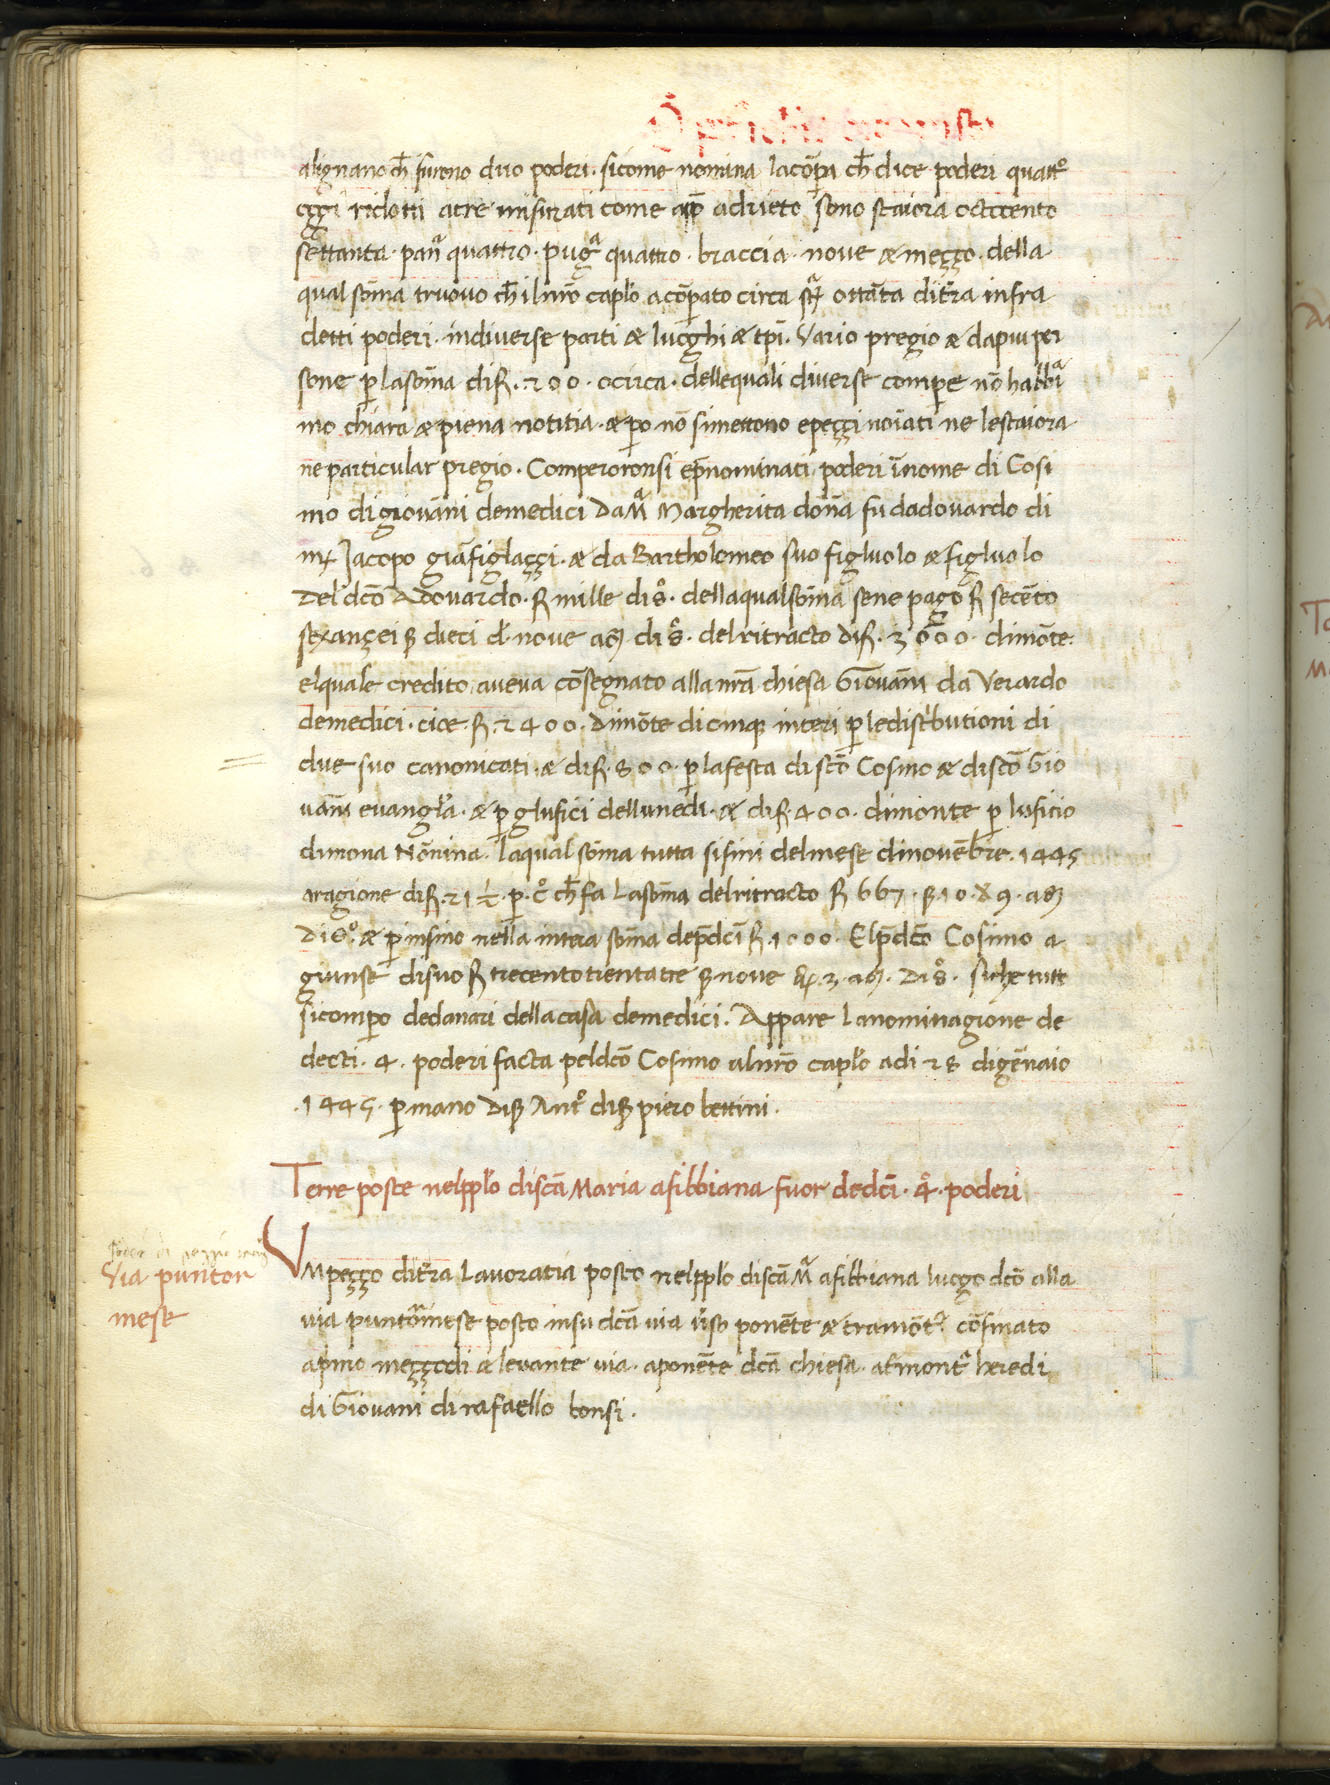 alignano ch̄ furono duo poderi · sicome nomina lacōpa ch̄ dice poderi quattº
oggi ridotti atre misurati come app̄ adrieto sono staiora octocento
settanta · panᵃ quattro · pugᵃ quattro · braccia · nove æ meçço della
qual sōma truovo ch̄ ilnr̄o capl̄o acōprato circa ottāta dit̄ra infra
detti poderi · indiverse parti æ luoghi æ tp̄i · Vario pregio æ dapiu per
sone p̲ lasōma dif̄ · 200 · ocirca · dellequali diverse compe̲re nō habbiā
mo chiara æ piena notitia · æ p̲o nō simettono epeççi noīati ne lestaiora
ne particular pregio · Comperoronsi ep̄nominati poderi īnome di Cosi
mo digiovāni demedici Da Mᵃ Margherita dōna fu dadovardo di
mꝶ Jacopo giāfiglaççi · æ da Bartholomeo suo figluolo æ figluolo
Del dc̄o Adovardo · f̄ mille di s̊ · dellaqualsōma sene pago f̄ secēto
sexançei ꝑ dieci d̄ · nove a oꝝ di s̊ · delritracto dif̄ · 3000 · dimōte ·
elquale credito aveva cōsegnato alla nr̄a chiesa Giovāni da Verardo
demedici · cioe · f̄ · 2400 · dimōte di cinqꝫ interi p̲ ledistributioni di
due suo canonicati · æ dif̄ · 800 · p̲ lafesta di sc̄o Cosimo æ disc̄o Gio
vāni evangl̄a · æ p̲ glufici dellunedi · æ dif̄ · 400 · dimonte p̲ lufficio
dimona Nōnina · laqual sōma tutta sifini delmese dinovēbre · 1445
aragione dif̄ · 21 ½ · p̲ · cº ch̄ fa lasōma delritracto f̄ 667 · 10 · 9 ·
æ p̲ insino nella intera sōma dep̄dc̄i f̄ · 1000 · Elp̄dc̄o Cosimo a
giunse disuo f̄ trecentotrentatre nove 3 · siche tutt
sicompo̲ dedanari della casa demedici · Appare lanominagione de
decti · 4 · poderi facta peldc̄o Cosimo alnr̄o capl̄o adi 28 digēnaio
· 1445 · p̲ mano di Antº di piero bettini ·
Terre poste nelppl̄o disc̄a Maria afibbiana fuor dedc̄i · 4º · poderi
Via puntor
mese
Vmpeçço dit̄ra Lavoratia posto nelppl̄o disc̄a Mᵃ afibbiana luogo dc̄o alla
via puntormese posto insu dc̄a via v̄so ponēte æ tramōtᵃ cōfinato
aprimo meççodi æ levante via · aponēte dc̄a chiesa · at̄montᵃ heredi
di Giovāni di rafaello bonsi ·